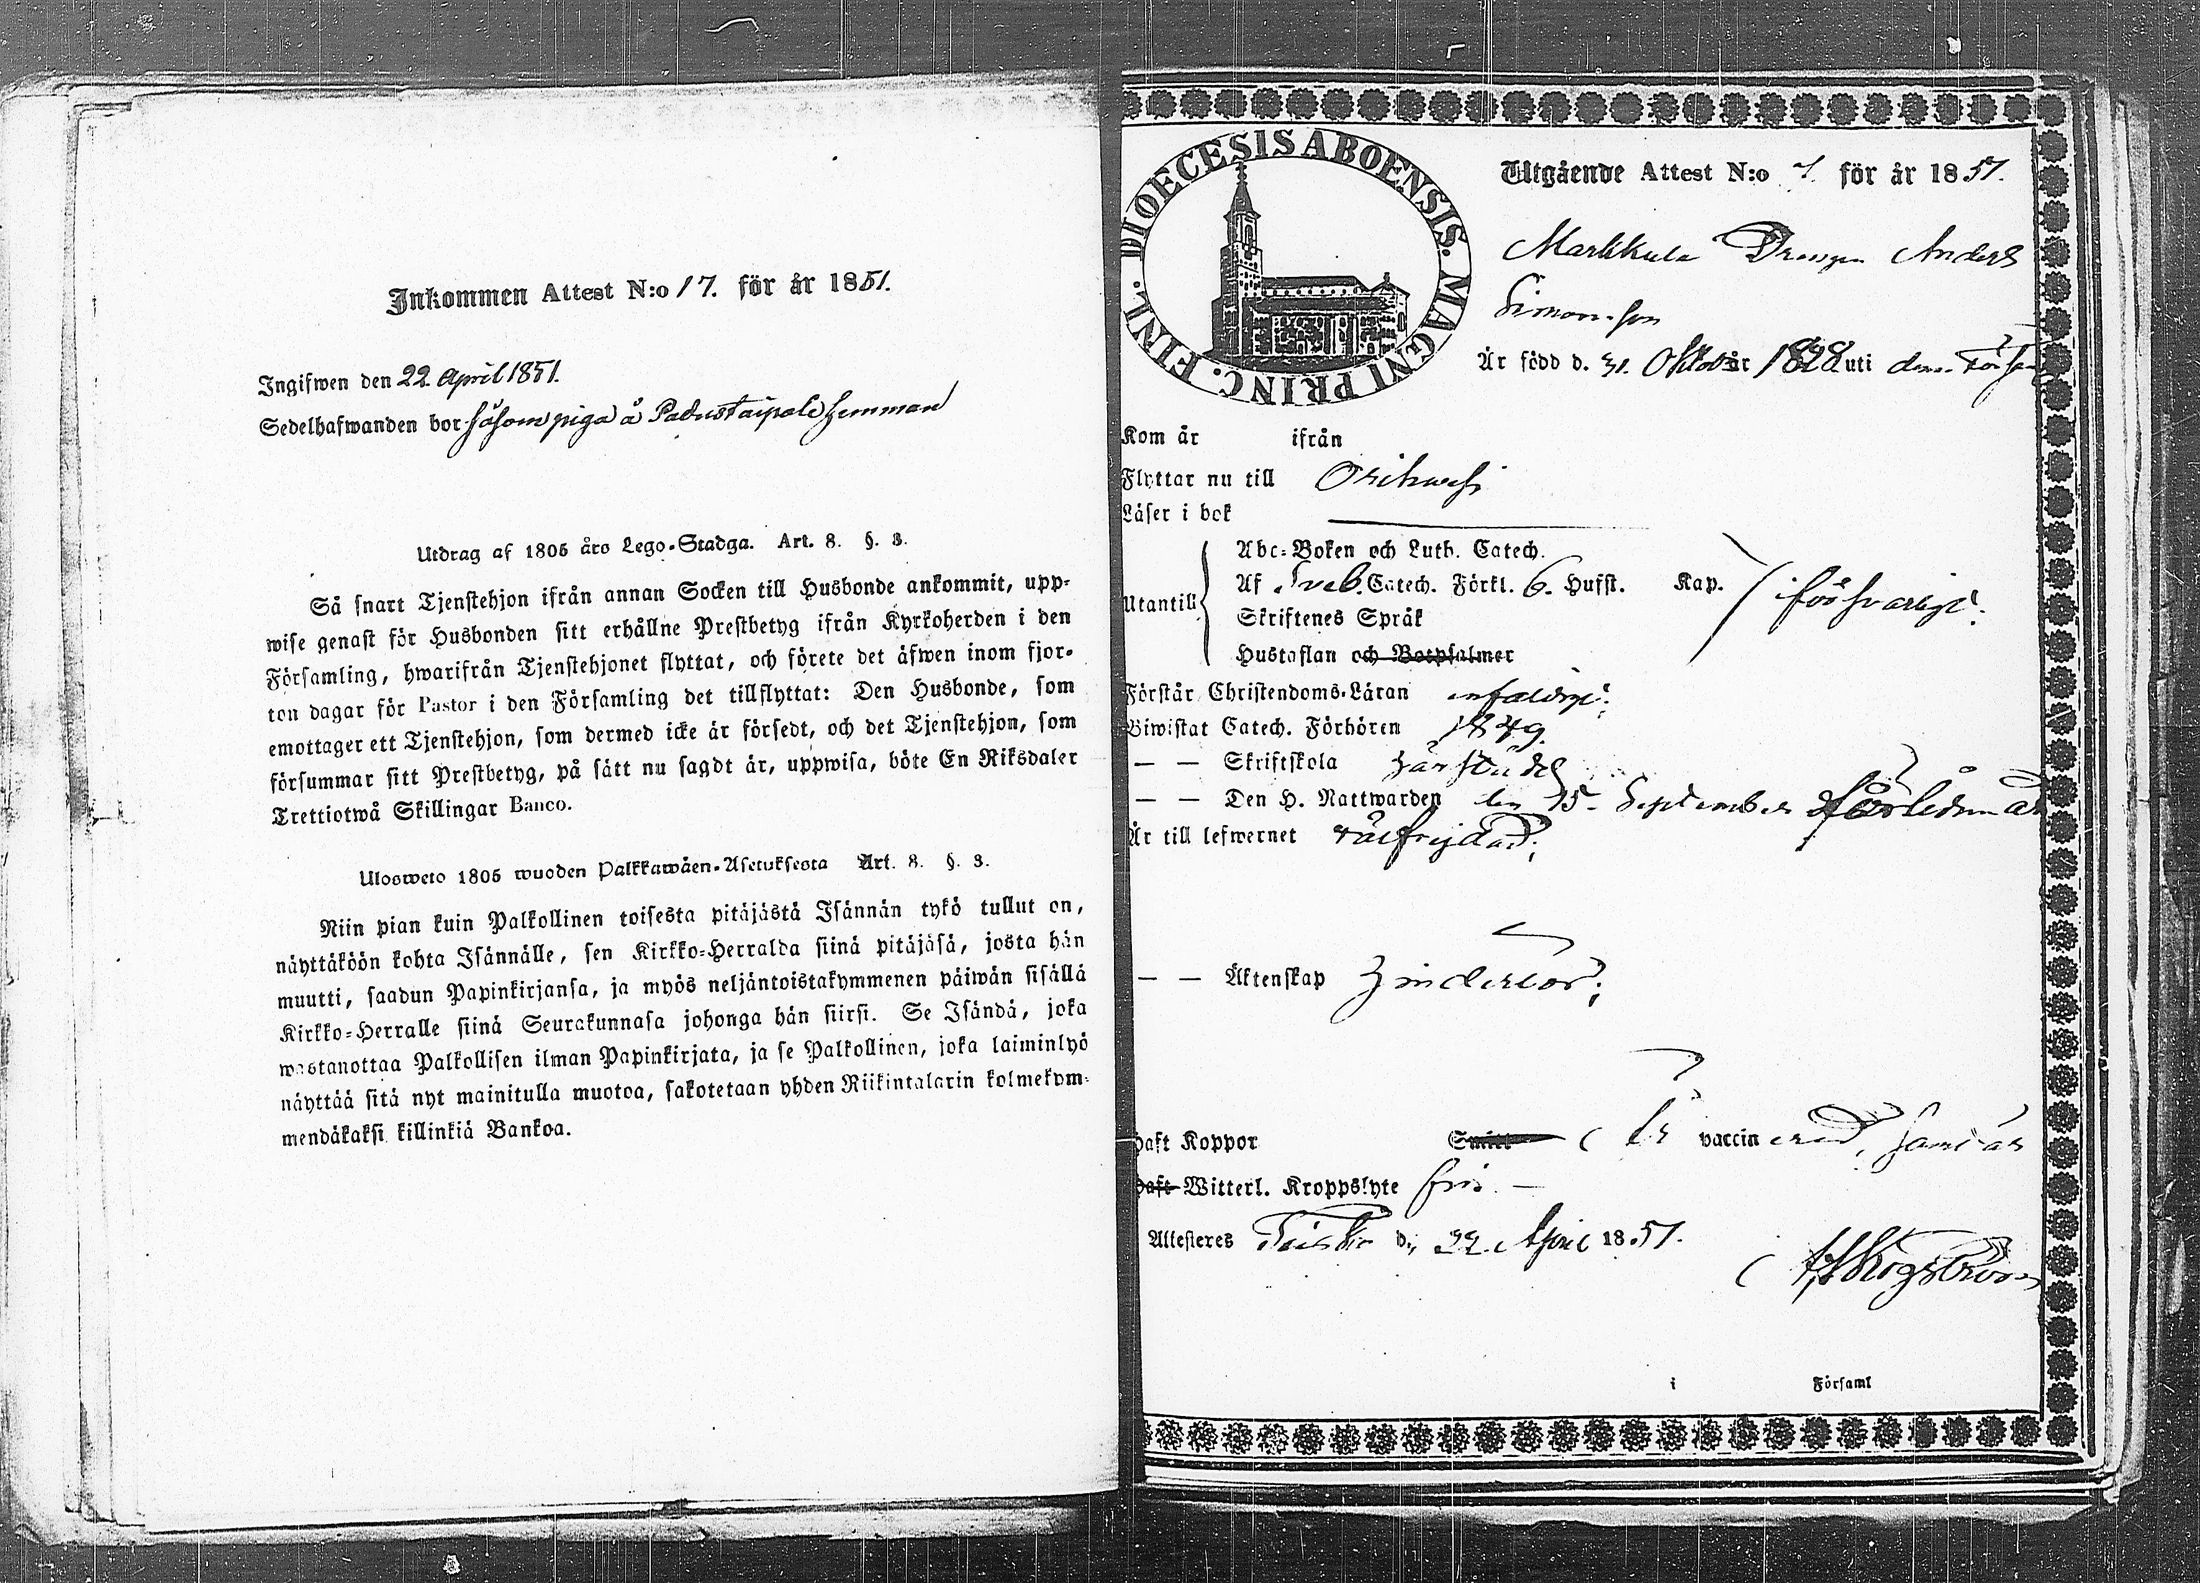 Inkommen Attest N:o 17. för år 1851.
Ingifwen den 22. April 1851.
Sedelhafwanden bor såsom piga å Padustaipale hemman
Utdrag af 1805 års Lego-Stadga. Art. 8. §. 3.
Så snart Tjenstehjon ifrån annan Socken till Husbonde ankommit, upp-
wise genast för Husbonden sitt erhållne Prestbetyg ifrån Kyrkoherden i den
Församling, hwarifrån Tjenstehjonet flyttat, och förete det äfwen inom fjor-
ton dagar för Pastor i den Församling det tillflyttat: Den Husbonde, som
emottager ett Tjenstehjon, som dermed icke är försedt, och det Tjenstehjon, som
försummar sitt Prestbetyg, på sätt nu sagdt är, uppwisa, böte En Riksdaler
Trettiotwå Skillingar Banco.
Ulosweto 1805 wuoden Palkkawäen-Asetuksesta Art. 8. §. 3.
Niin pian kuin Palkollinen toisesta pitäjästä Isännän tykö tullut on,
näyttäköön kohta Isännälle, sen Kirkko-Herralda siinä pitäjäsä, josta hän
muutti, saadun Papinkirjansa, ja myös neljäntoistakymmenen päiwän sisällä
Kirkko-Herralle siinä Seurakunnasa johonga hän siirsi. Se Isändä, joka
wastanottaa Palkollisen ilman Papinkirjata, ja se Palkollinen, joka laiminlyö
näyttää sitä nyt mainitulla muotoa, sakotetaan yhden Riikintalarin kolmekym-
mendäkaksi killinkiä Bankoa.
DIOECESIS ABOENSIS. MAGNI PRINC. FINL.
Utgående Attest N:o 7. för år 1851.
Markkula Drengen Anders
Simonsson
Är född d. 31. Oktober år 1828 uti denna Förs
Kom år ifrån
Flyttar nu till Orihwesi
Läser i bok
Utantill
Abc-Boken och Luth. Catech.
Af Sveb. Catech. Förkl. 6. Hufst. Kap.
Skriftenes Språk
Hustaflan och Botpsalmer
försvarligt;
Förstår Christendoms-Läran enfaldigt;
Biwistat Catech. Förhören 1849.
— — Skriftskola härstädes
— — Den H. Nattwarden den 15. September förledne år
Är till lefwernet wälfrejdad;
— — Äktenskap hinderlös;
Haft Koppor Smitt Är vaccinerad, samt är
Haft Witterl. Kroppslyte fri. —
Attesteres Teisko d. 22. April 1851.
Skogström
i Församl